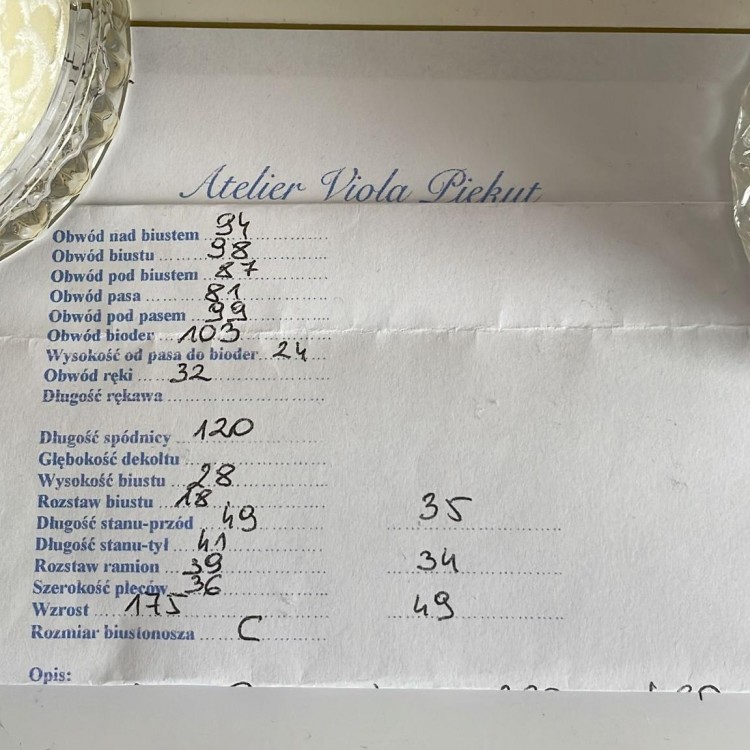 Atelier Viola Piekut
Obwód nad biustem 94
Obwód biustu 98
Obwód pod biustem 87
Obwód pasa 81
Obwód pod pasem 99
Obwód bioder 103
Wysokość od pasa do bioder 24
Obwód ręki 32
Długość rękawa
Długość spódnicy 120
Głębokość dekoltu
Wysokość biustu 28
Rozstaw biustu 18
Długość stanu-przód 49 35
Długość stanu-tył 41
Rozstaw ramion 39 34
Szerokość pleców 36
Wzrost 175 49
Rozmiar biustonosza C
Opis: